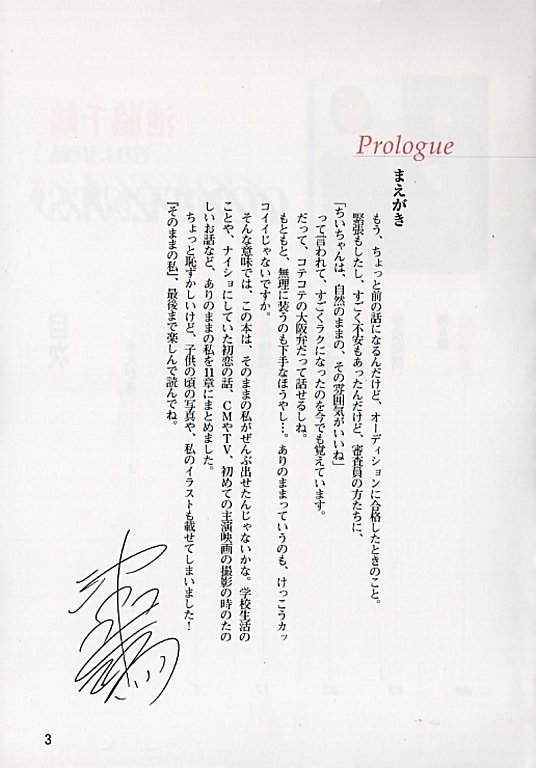 Prologue
まえがき
もう、ちょっと前の話になるんだけど、オーディションに合格したときのこと。
緊張もしたし、すごく不安もあったんだけど、審査員の方たちに、
「ちいちゃんは、自然のままの、その雰囲気がいいね」
って言われて、すごくラクになったのを今でも覚えています。
だって、コテコテの大阪弁だって話せるしね。
もともと、無理に装うのも下手なほうやし…。ありのままっていうのも、けっこうカッ
コイイじゃないですか。
そんな意味では、この本は、そのままの私がぜんぶ出せたんじゃないかな。学校生活の
ことや、ナイショにしていた初恋の話、CMやTV、初めての主演映画の撮影の時のたの
しいお話など、ありのままの私を11章にまとめました。
ちょっと恥ずかしいけど、子供の頃の写真や、私のイラストも載せてしまいました！
『そのままの私』、最後まで楽しんで読んでね。
3